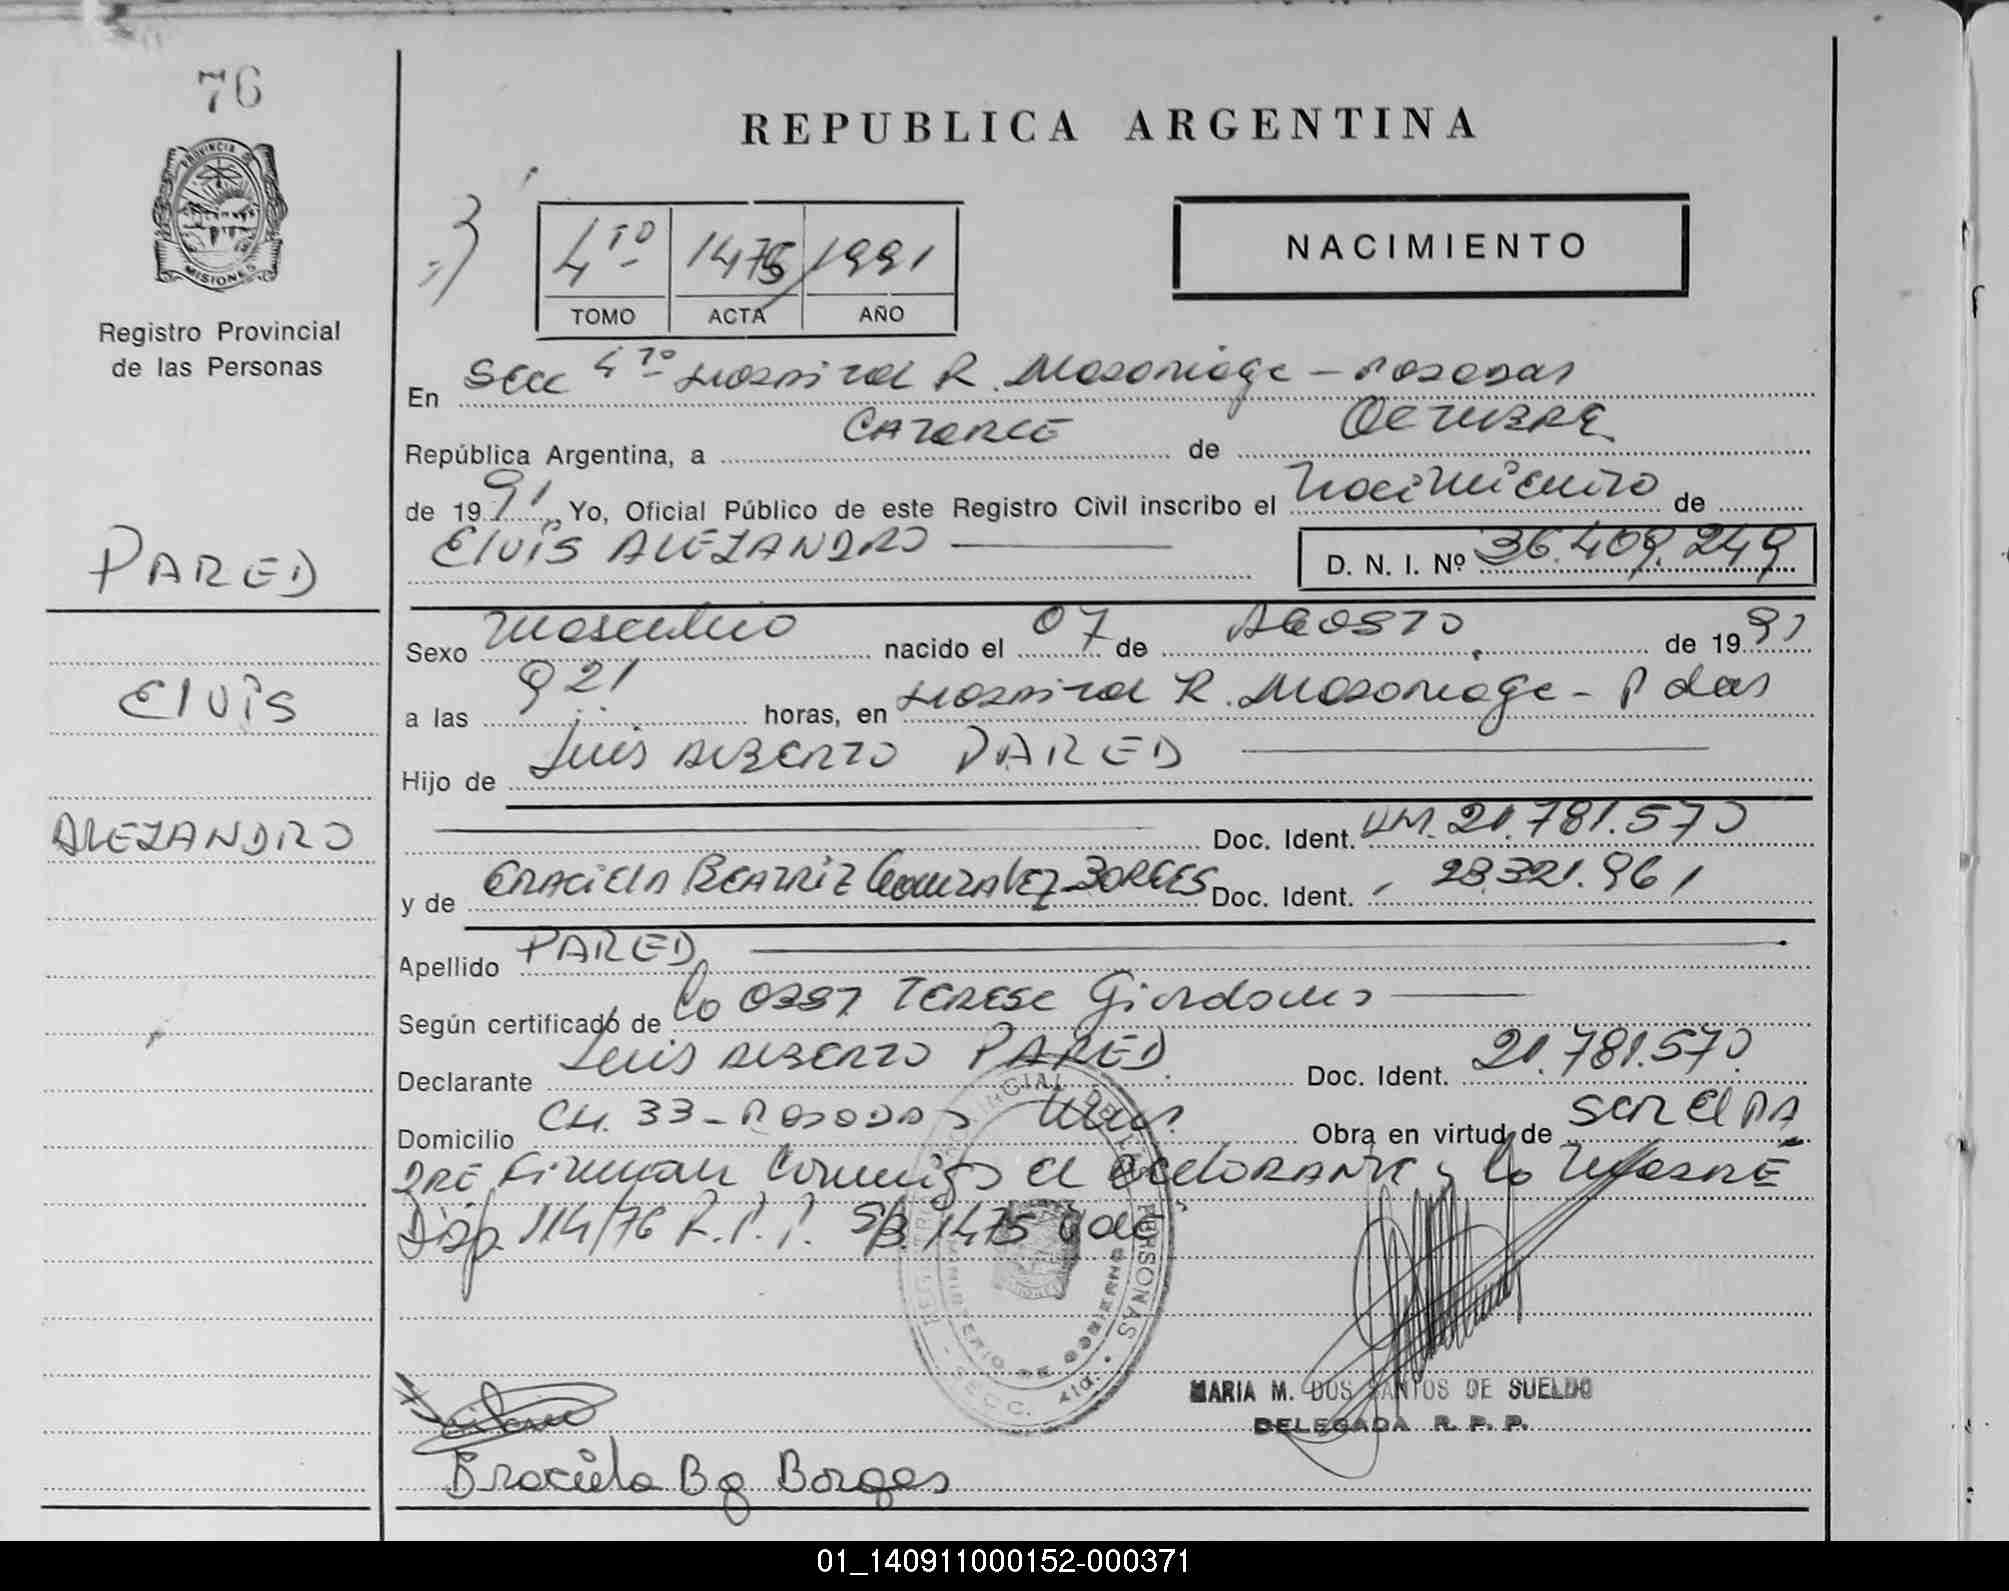 76
PROVINCIA DE
MISIONES
Registro Provincial
de las Personas
PARED
Elvis
ALEJANDRO
REPUBLICA ARGENTINA
4TO 1475 1991
TOMO ACTA AÑO
NACIMIENTO
En Secc 4TO Hospital R. Madariaga - Posadas
República Argentina, a CATORCE de OCTUBRE
de 1991 Yo, Oficial Público de este Registro Civil inscribo el Nacimiento de
Elvis ALEJANDRO D. N. I. Nº 36.409.249
Sexo Masculino nacido el 07 de AGOSTO de 1991
a las 9 21 horas, en Hospital R. Madariaga - Pdas
Hijo de Luis ALBERTO PARED
Doc. Ident. DNI. 21.781.570
y de GRACIELA BEATRIZ GONZALEZ BORGES Doc. Ident. 23.321.961
Apellido PARED
Según certificado de la OBST TERESA Giordano
Declarante Luis ALBERTO PARED Doc. Ident. 21.781.570
Domicilio CH. 33 - POSADAS Mnes. Obra en virtud de SER El PA
DRE Firman Conmigo el DECLARANTE y la MADRE
Disp. 114/76 R.P.P. S/B 1475 Vale
REGISTRO PROVINCIAL DE LAS PERSONAS
MINISTERIO DE GOBIERNO
- SECC. 4ta. -
MARIA M. DOS SANTOS DE SUELDO
DELEGADA R. P. P.
Graciela B g Borges
01_140911000152-000371